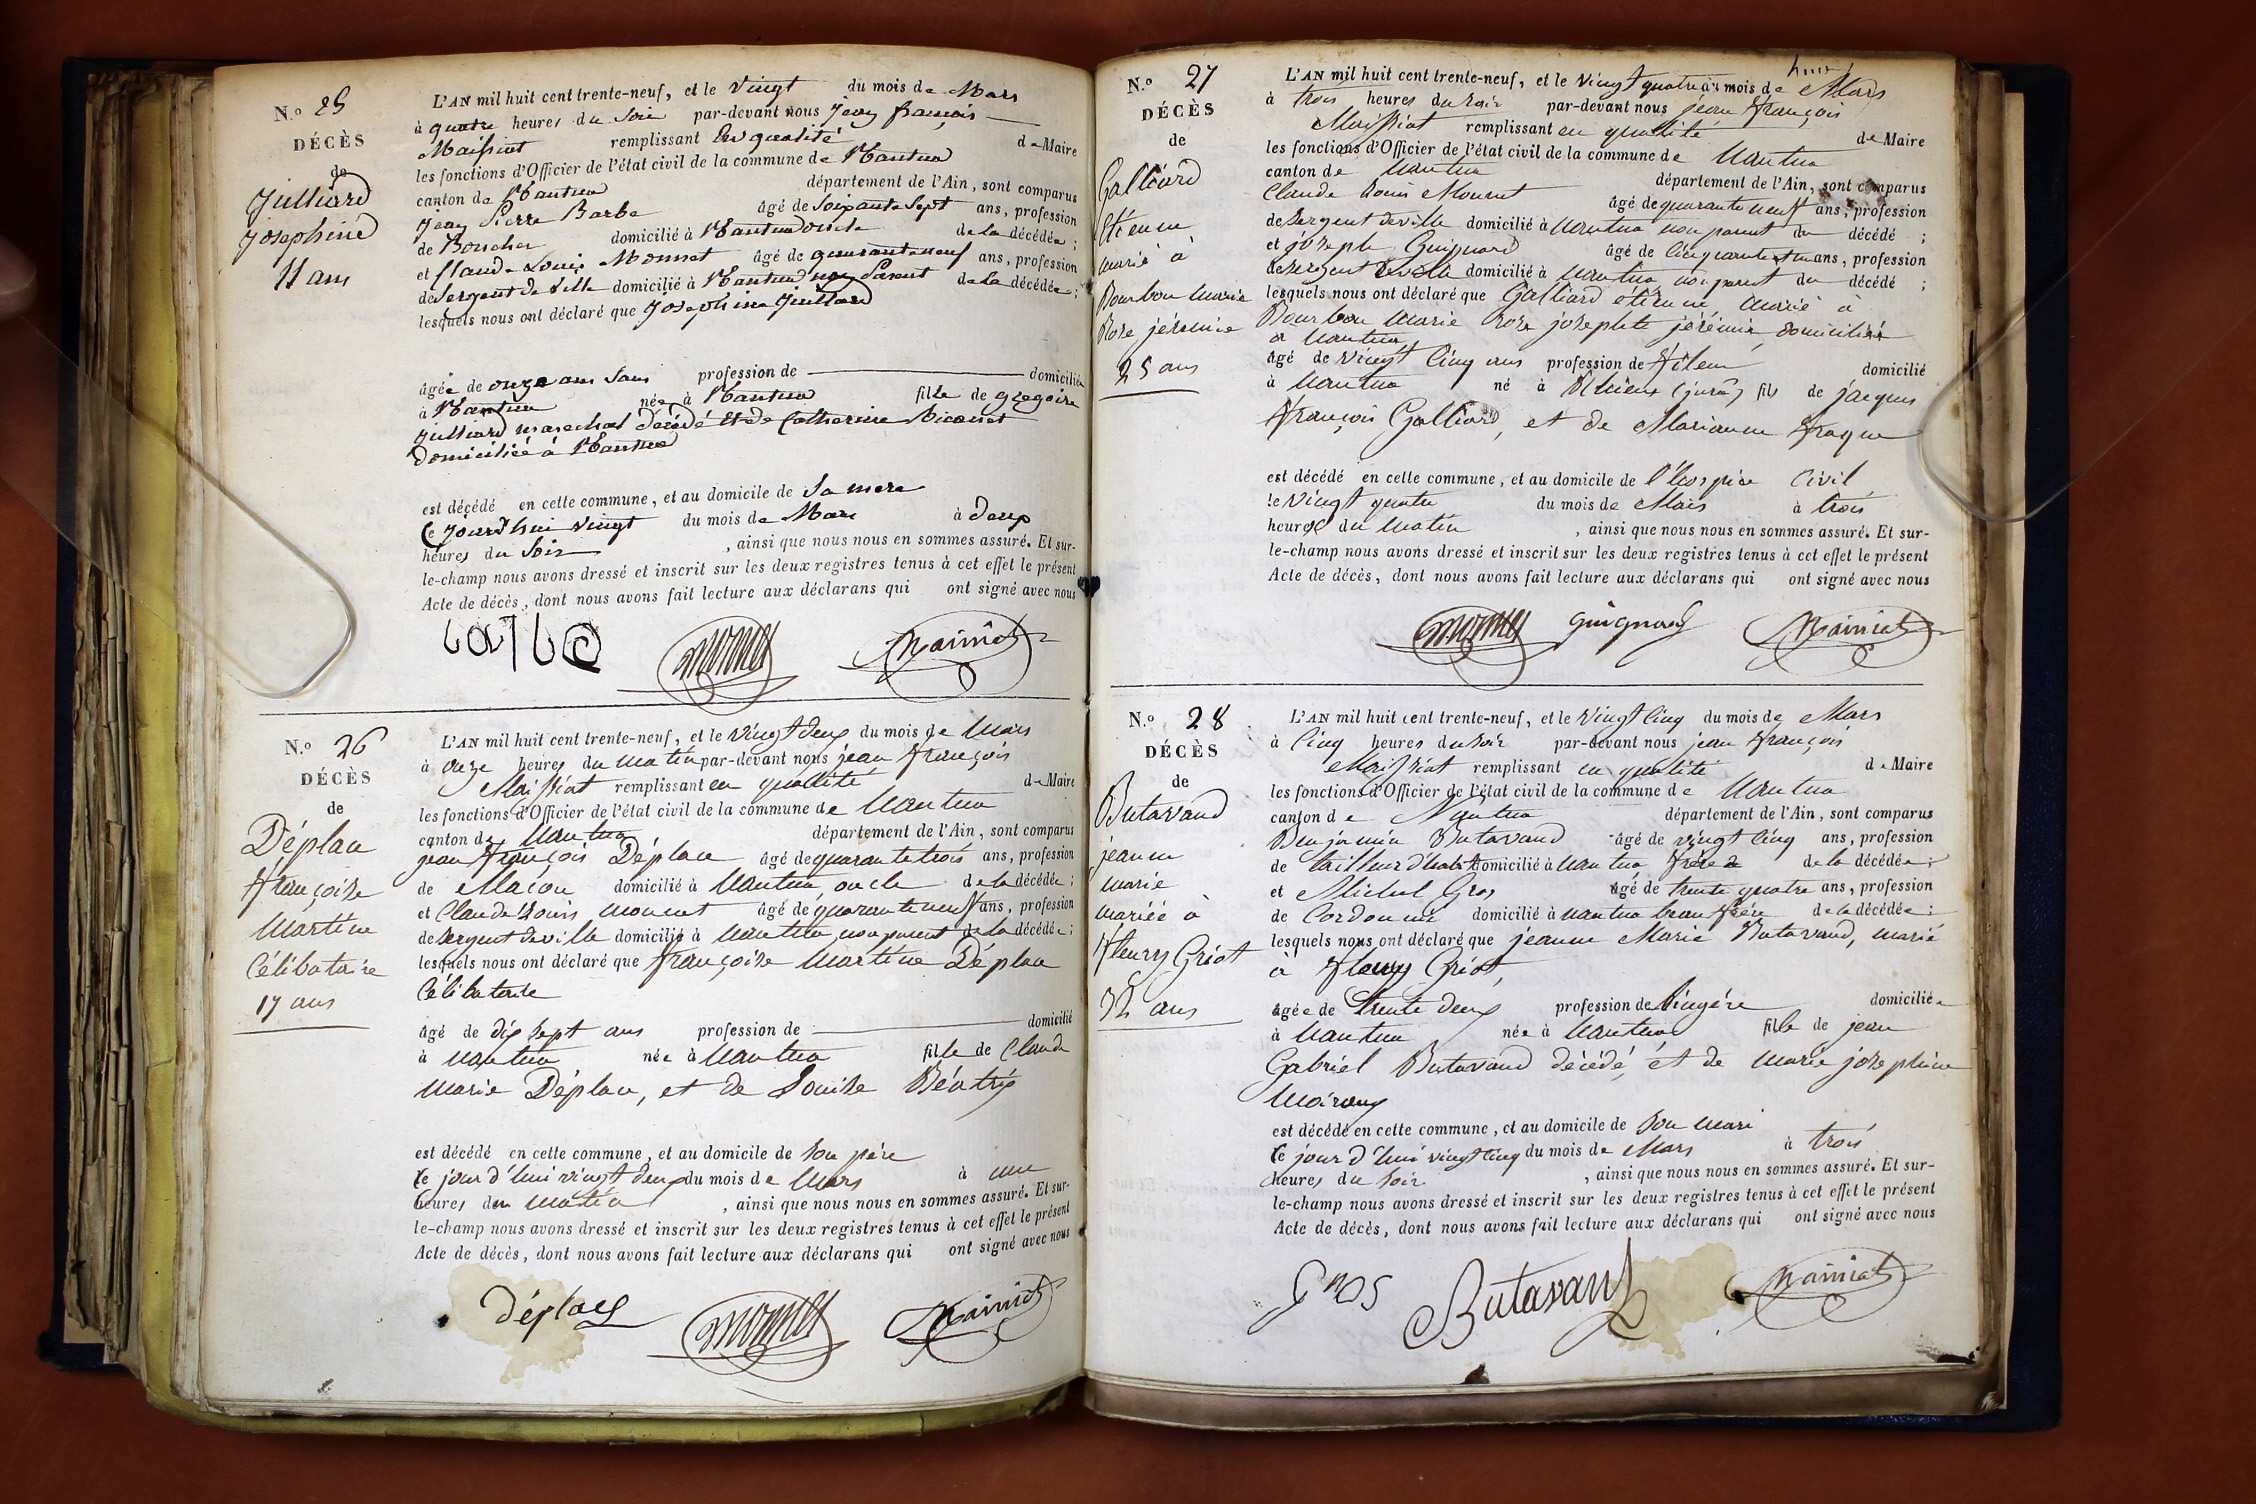 N.º 25
DÉCÈS
de
Julliard
Josephine
11 ans
L'AN mil huit cent trente-neuf, et le Vingt du mois de Mars
à quatre heures du Soir par-devant nous Jean françois
Maissiat remplissant En qualité de Maire
les fonctions d'Officier de l'état civil de la commune de Nantua
canton de Nantua département de l'Ain, sont comparus
Jean Pierre Barbe âgé de Soixante Sept ans, profession
de Boucher domicilié à Nantua oncle de la décédée ;
et Claude Louis Monnet âgé de quarante neuf ans, profession
de Sergent de Ville domicilié à Nantua non Parent de la décédée ;
lesquels nous ont déclaré que Josephine Julliard
âgée de onze ans Sans profession de domiciliée
à Nantua née à Nantua fille de gregoire
Julliard marechal décédé Et de Catherine
domiciliée à Nantua
est décédé en cette commune, et au domicile de Sa mere
Ce Jourd'hui Vingt du mois de Mars à deux
heures du Soir , ainsi que nous nous en sommes assuré. Et sur-
le-champ nous avons dressé et inscrit sur les deux registres tenus à cet effet le présent
Acte de décès, dont nous avons fait lecture aux déclarans qui ont signé avec nous
barbe monnet Maissiat
N.º 26
DÉCÈS
de
Déplace
françoise
Martine
Célibataire
17 ans
L'AN mil huit cent trente-neuf, et le Vingt deux du mois de Mars
à onze heures du matin par-devant nous jean françois
Maissiat remplissant en qualité de Maire
les fonctions d'Officier de l'état civil de la commune de Nantua
canton de Nantua département de l'Ain, sont comparus
jean françois Déplace âgé de quarante trois ans, profession
de Maçon domicilié à Nantua, oncle de la décédée ;
et Claude Louis monnet âgé de quarante neuf ans, profession
de Sergent de ville domicilié à Nantua non parent de la décédée ;
lesquels nous ont déclaré que françoise Martine Déplace
Célibataire
âgé de dix sept ans profession de domicilié
à Nantua née à Nantua fille de Claude
Marie Déplace, et de Louise Béatrix
est décédé en cette commune, et au domicile de son père
Ce jour d'hui vingt deux du mois de Mars à une
heures du matin , ainsi que nous nous en sommes assuré. Et sur-
le-champ nous avons dressé et inscrit sur les deux registres tenus à cet effet le présent
Acte de décès, dont nous avons fait lecture aux déclarans qui ont signé avec nous
déplace monnet Maissiat
N.º 27
DÉCÈS
de
Galliard
Etienne
marié à
Bourbon Marie
Rose jérémie
25 ans
L'AN mil huit cent trente-neuf, et le Vingt quatre du mois de Mars
à trois heures du soir par-devant nous jean françois
Maissiat remplissant en qualité de Maire
les fonctions d'Officier de l'état civil de la commune de Nantua
canton de Nantua département de l'Ain, sont comparus
Claude Louis Monnet âgé de quarante neuf ans, profession
de Sergent de ville domicilié à Nantua non parent du décédé ;
et joseph Guignard âgé de Cinquante un ans, profession
de Sergent de ville domicilié à Nantua, non parent du décédé ;
lesquels nous ont déclaré que Galliard etienne, marié à
Bourbon Marie Rose josephte jérémie domiciliés
à Nantua
âgé de vingt Cinq ans profession de fileur domicilié
à Nantua né à (jura) fils de jacques
françois Galliard, et de Marianne
est décédé en cette commune, et au domicile de l'hospice Civil
le Vingt quatre du mois de Mars à trois
heures du Matin , ainsi que nous nous en sommes assuré. Et sur-
le-champ nous avons dressé et inscrit sur les deux registres tenus à cet effet le présent
Acte de décès, dont nous avons fait lecture aux déclarans qui ont signé avec nous
monnet guignard Maissiat
N.º 28
DÉCÈS
de
Butavand
jeanne
marie
mariée à
fleury Griot
32 ans
L'AN mil huit cent trente-neuf, et le Vingt Cinq du mois de Mars
à Cinq heures du soir par-devant nous jean françois
Maissiat remplissant en qualité de Maire
les fonctions d'Officier de l'état civil de la commune de Nantua
canton de Nantua département de l'Ain, sont comparus
Benjamin Butavand âgé de vingt Cinq ans, profession
de tailleur d'habit domicilié à Nantua frère de la décédée ;
et Michel Gros âgé de trente quatre ans, profession
de Cordonnié domicilié à Nantua beau frère de la décédée ;
lesquels nous ont déclaré que jeanne Marie Butavand, marié
à fleury Griot,
âgée de trente deux profession de lingère domiciliée
à Nantua née à Nantua fille de jean
Gabriel Butavand décédé, et de Marie josephine
est décédé en cette commune, et au domicile de son mari
Ce jour d'hui vingt Cinq du mois de Mars à trois
heures du soir , ainsi que nous nous en sommes assuré. Et sur-
le-champ nous avons dressé et inscrit sur les deux registres tenus à cet effet le présent
Acte de décès, dont nous avons fait lecture aux déclarans qui ont signé avec nous
Gros Butavand Maissiat